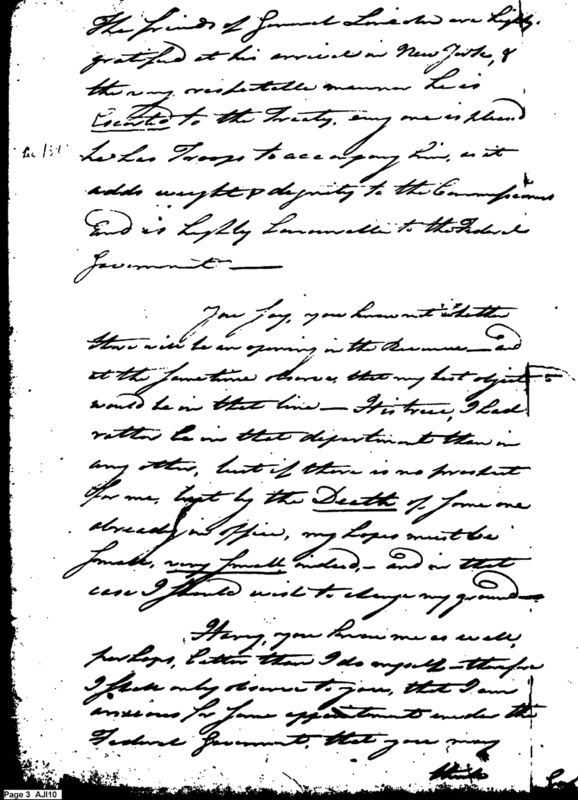 The friends of General Lincoln are highly
gratified at his arrival in New York, &
the very respectable manner he is
Escorted to the Treaty. every one is pleasd
he has Troops to accompany him, as it
adds weight & dignity to the Commissioners
And is highly honourable to the Federal
Government —
You say, you know not whether
there will be an opening in the Revenue — and
at the same time observe, that my best object
would be in that line — Tis true, I had
rather be in that department than in
any other, but if there is no prospect
for me, but by the Death of some one
already in office, my hopes must be
small, very small indeed, — and in that
case I should wish to change my ground —
Harry, you know me as well,
perhaps, better than I do myself — therefore
I shall only observe to you, that I am
anxious for some appointment under the
Federal Government. that you may
think
Page 3 AJI10